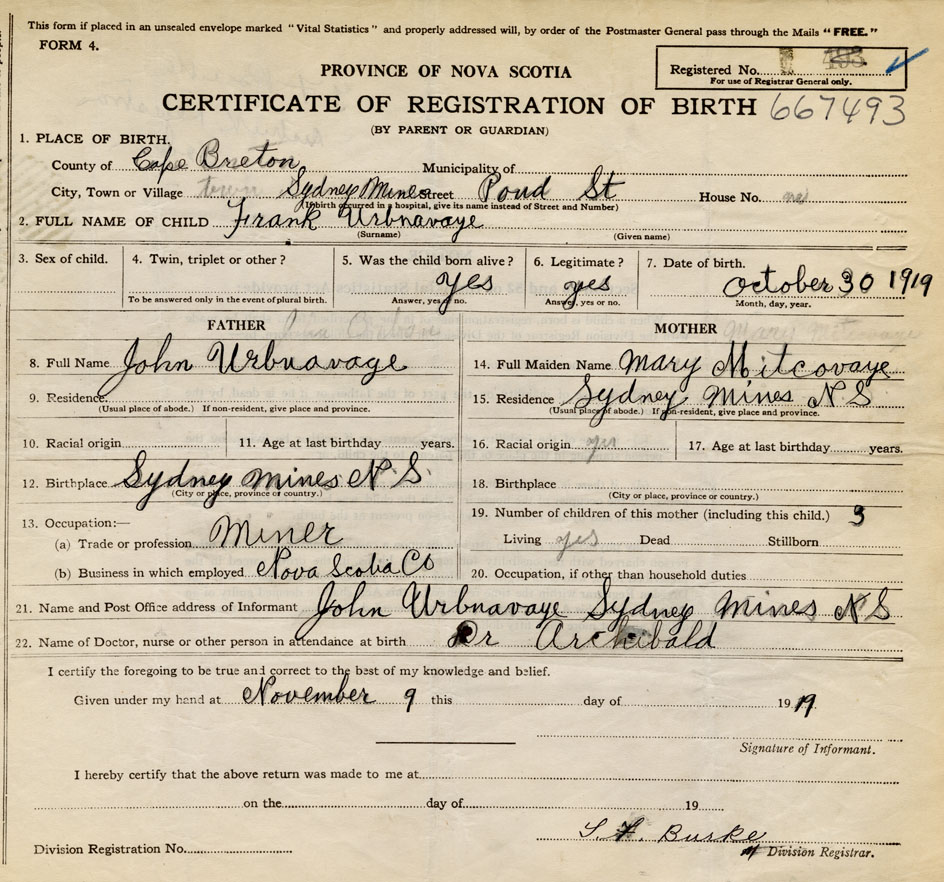 This form if placed in an unsealed envelope marked "Vital Statistics" and properly addressed will, by order of the Postmaster General pass through the Mails "FREE."
FORM 4.
Registered No. 493
For use of Registrar General only.
PROVINCE OF NOVA SCOTIA
CERTIFICATE OF REGISTRATION OF BIRTH 667493
(BY PARENT OR GUARDIAN)
1. PLACE OF BIRTH.
County of Cape Breton Municipality of
City, Town or Village town Sydney Mines Street Poud St House No.
(If birth occurred in a hospital, give its name instead of Street and Number)
2. FULL NAME OF CHILD Frank Urbnavaye
(Surname) (Given name)
3. Sex of child. 4. Twin, triplet or other? 5. Was the child born alive? 6. Legitimate? 7. Date of birth.
yes yes october 30 1919
To be answered only in the event of plural birth. Answer, yes or no. Answer, yes or no. Month, day, year.
FATHER
8. Full Name John Urbnavage
9. Residence.
(Usual place of abode.) If non-resident, give place and province.
10. Racial origin 11. Age at last birthday years.
12. Birthplace Sydney mines N S.
(City or place, province or country.)
13. Occupation:—
(a) Trade or profession Miner
(b) Business in which employed Nova Scobia Co
MOTHER
14. Full Maiden Name Mary Mitcovaye
15. Residence Sydney Mines N S
(Usual place of abode.) If non-resident, give place and province.
16. Racial origin yes 17. Age at last birthday years.
18. Birthplace
(City or place, province or country.)
19. Number of children of this mother (including this child.) 3
Living yes Dead Stillborn
20. Occupation, if other than household duties
21. Name and Post Office address of Informant John Urbnavaye Sydney Mines N S
22. Name of Doctor, nurse or other person in attendance at birth Dr Archibald
I certify the foregoing to be true and correct to the best of my knowledge and belief.
Given under my hand at November 9 this day of 1919
Signature of Informant.
I hereby certify that the above return was made to me at
on the day of 19
S F Burke
Division Registration No. Division Registrar.